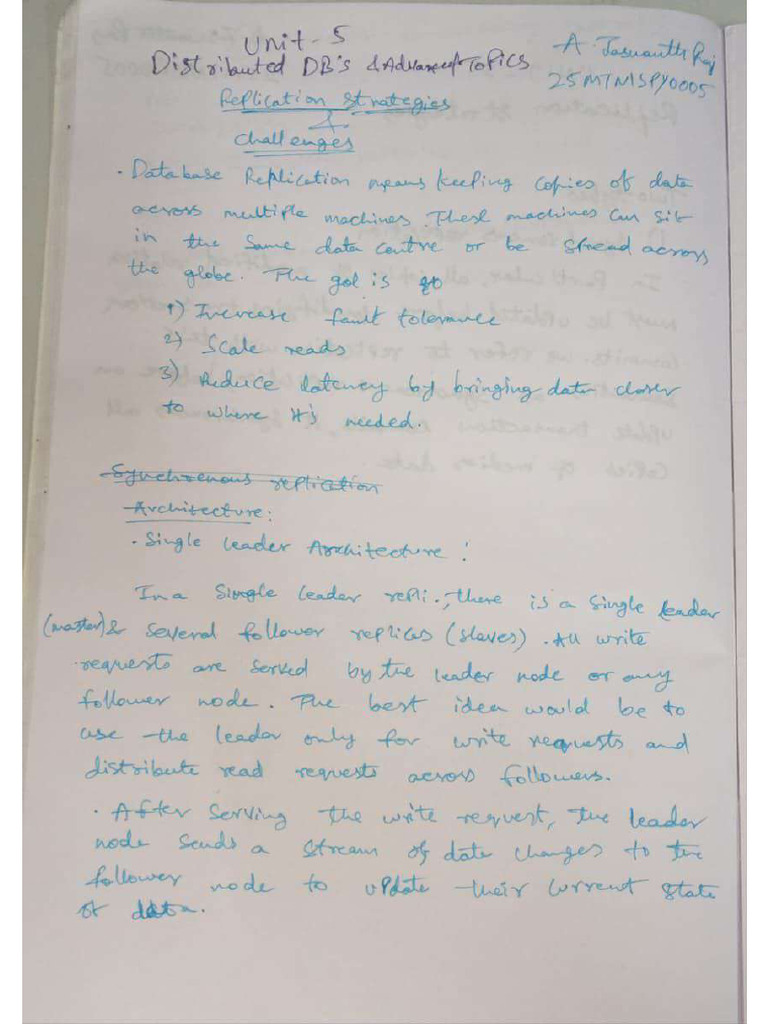 Unit-5
Distributed DB's & Advanced Topics
A Jaswanth Raj
25MTNISPY0005
Replication Strategies
&
Challenges
. Database Replication means keeping copies of data
across multiple machines. These machines can sit
in the same data centre or be spread across
the globe. The gol is to
1) Increase fault tolerance
2) Scale reads
3) Reduce latency by bringing data closer
to where it's needed.
Synchrenous replication
Architecture:
. Single leader Architecture :
In a Single leader repli., there is a single leader
(master) & several follower replicas (slaves). All write
requests are served by the leader node or any
follower node. The best idea would be to
use the leader only for write requests and
distribute read requests across followers.
. After serving the write request, the leader
node sends a stream of data changes to the
follower node to update their current state
of data.